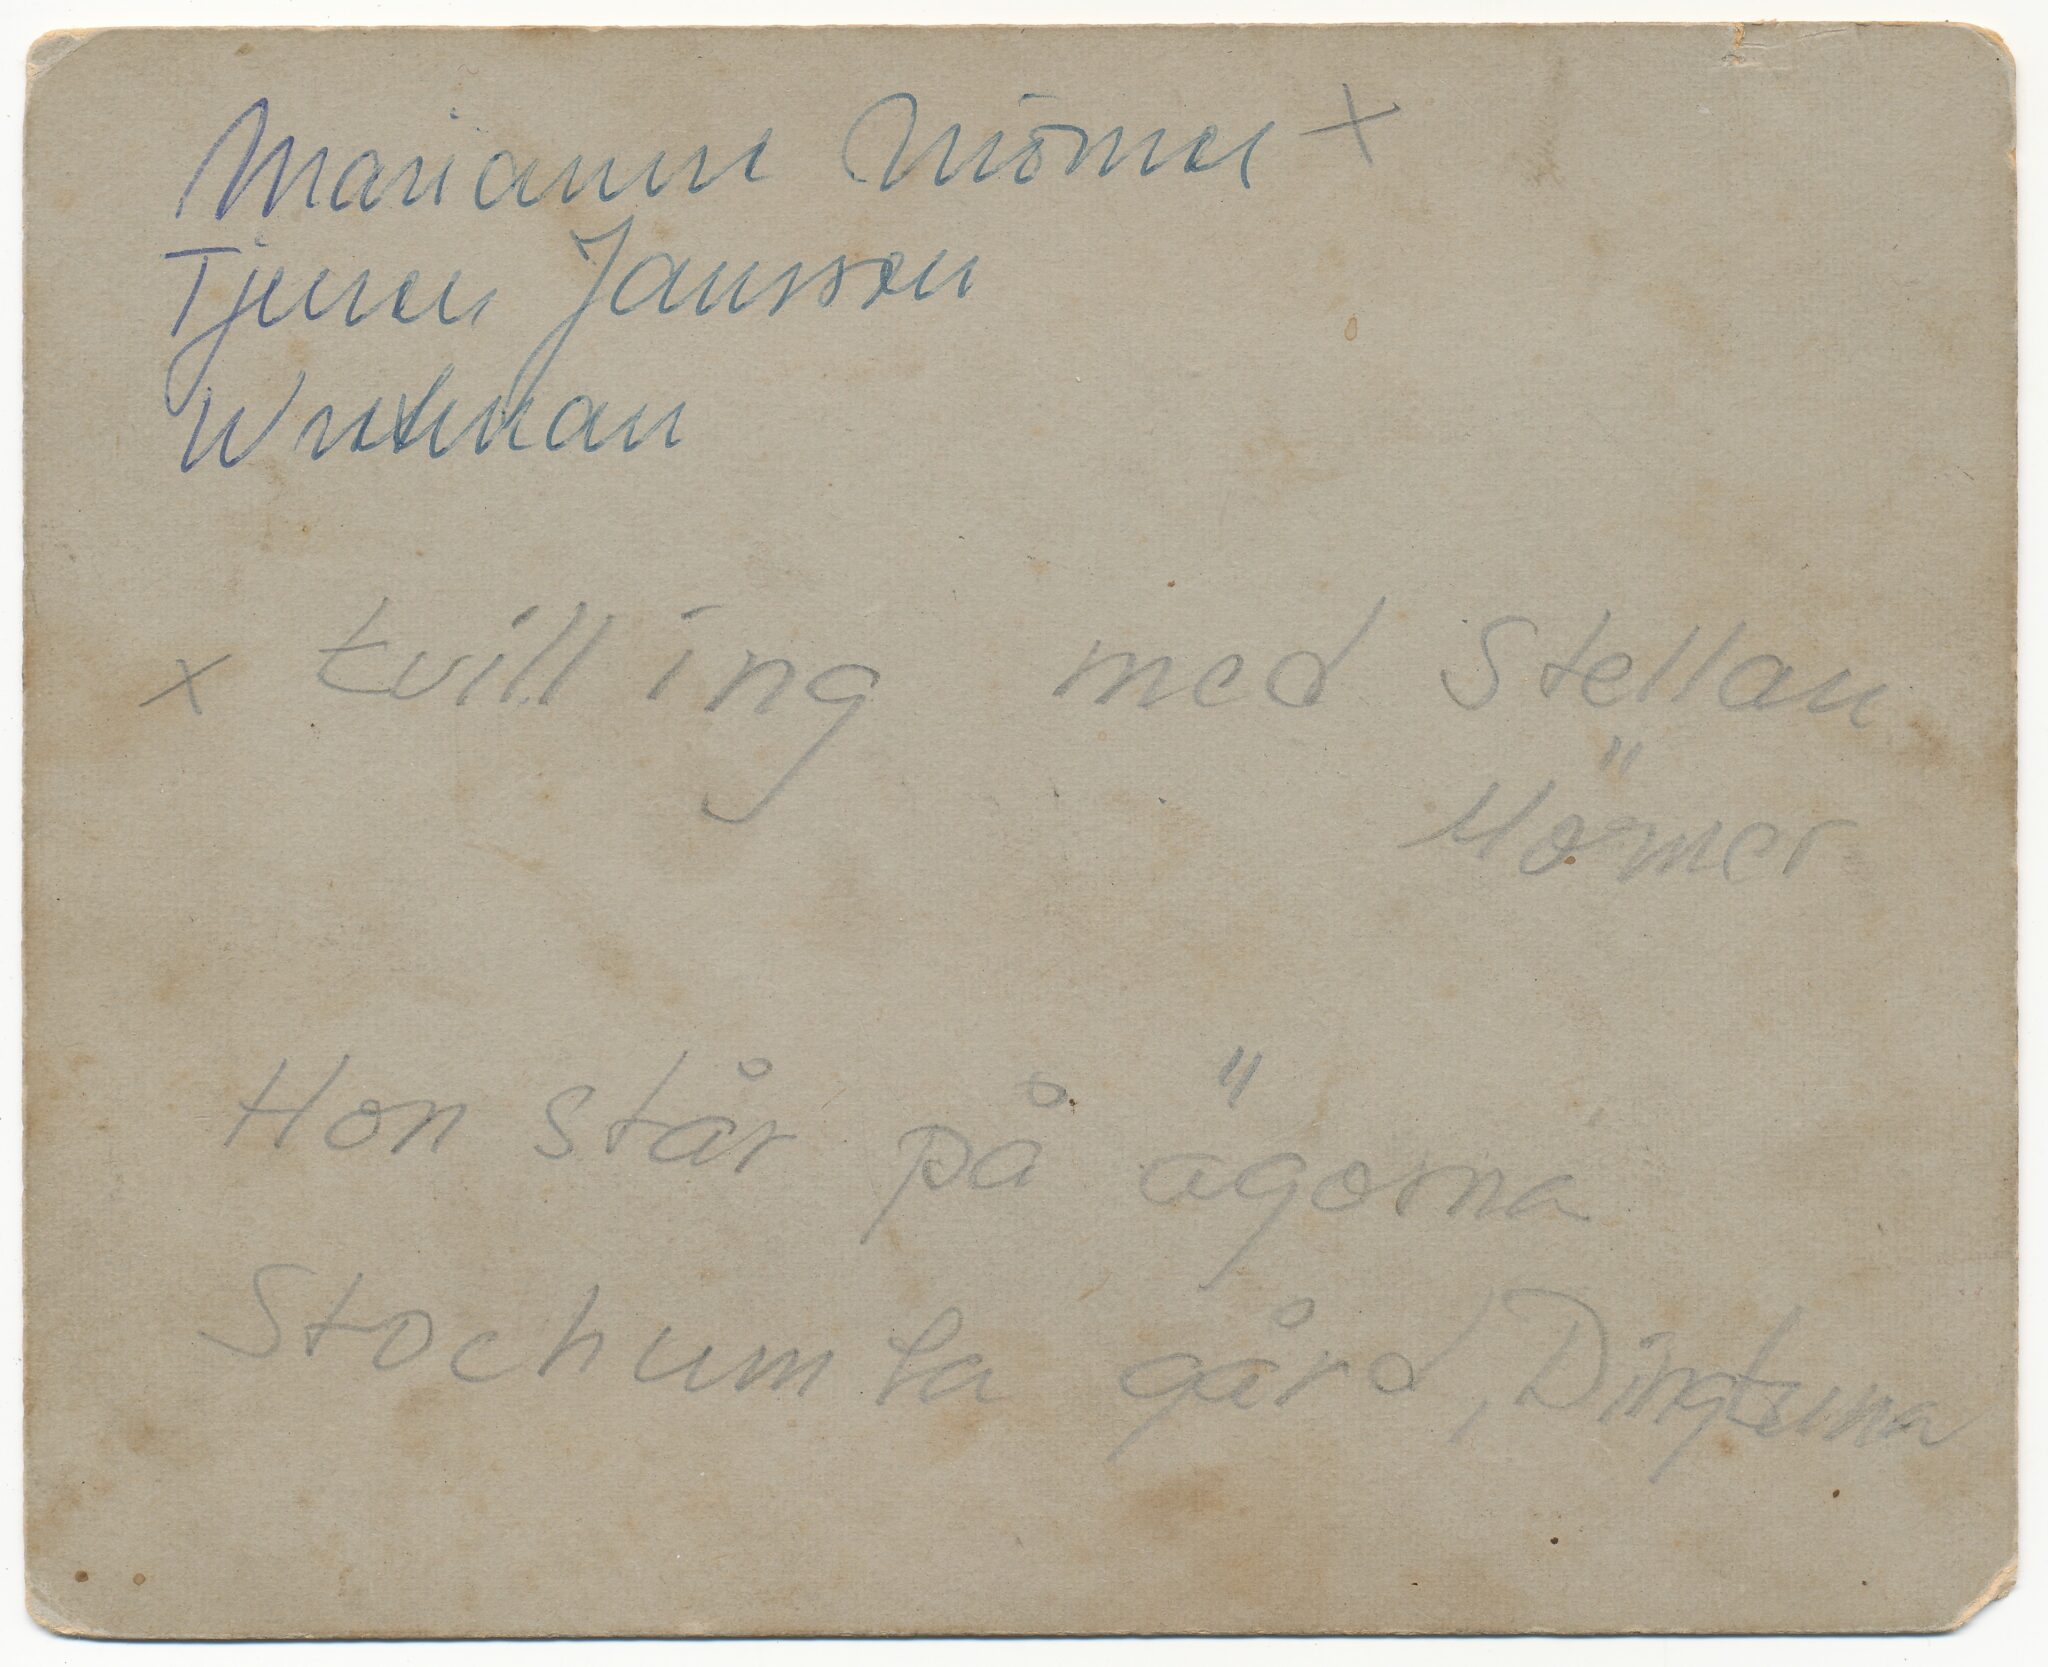 Marianne Mörner x
Tjänaren Jansson
x tvilling med Stellan
Mörner
Hon står på ägorna
Stochumla gård, Dingtuna